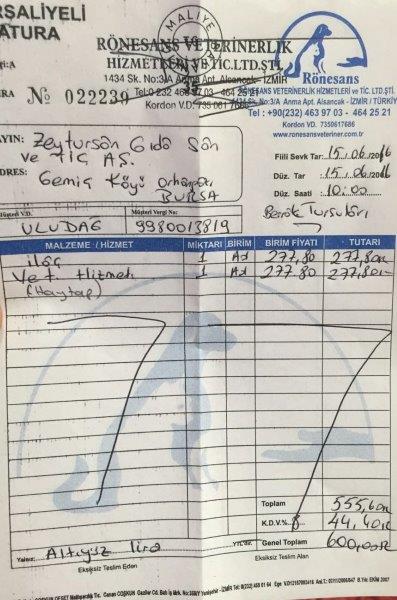 İRSALİYELİ
FATURA
MALİYE
RÖNESANS VETERİNERLİK
HİZMETLERİ VE TİC.LTD.ŞTİ.
1434 Sk. No:3/A Anma Apt. Alsancak - İZMİR
Tel:0 232 463 97 03 - 464 25 21
Kordon V.D. 735 061 7686
No 022239
Rönesans
VETERİNERLİK HİZMETLERİ ve TİC. LTD.ŞTİ.
No:3/A Anma Apt. Alsancak - İZMİR / TÜRKİYE
Tel : +90(232) 463 97 03 - 464 25 21
Kordon VD. 7350617686
www.ronesansveteriner.com.tr
SAYIN: Zeytursan Gıda San
ve TİC AŞ.
ADRES: Gemiç Köyü Orhangazi
BURSA
Fiili Sevk Tar: 15/06/2016
Düz. Tar : 15/06/2016
Düz. Saati : 10:00
Berrak Turşuları
Müşteri V.D. Müşteri Vergi No:
ULUDAĞ 9980013819
MALZEME / HİZMET MİKTARI BİRİM BİRİM FİYATI TUTARI
ilaç 1 Ad 277,80 277,80
Vet. Hizmeti 1 Ad 277.80 277,80
(Haytap)
Toplam 555,60
K.D.V.% 8 44,40
Yalnız: Altıyüz lira Genel Toplam 600,00
Eksiksiz Teslim Eden Eksiksiz Teslim Alan